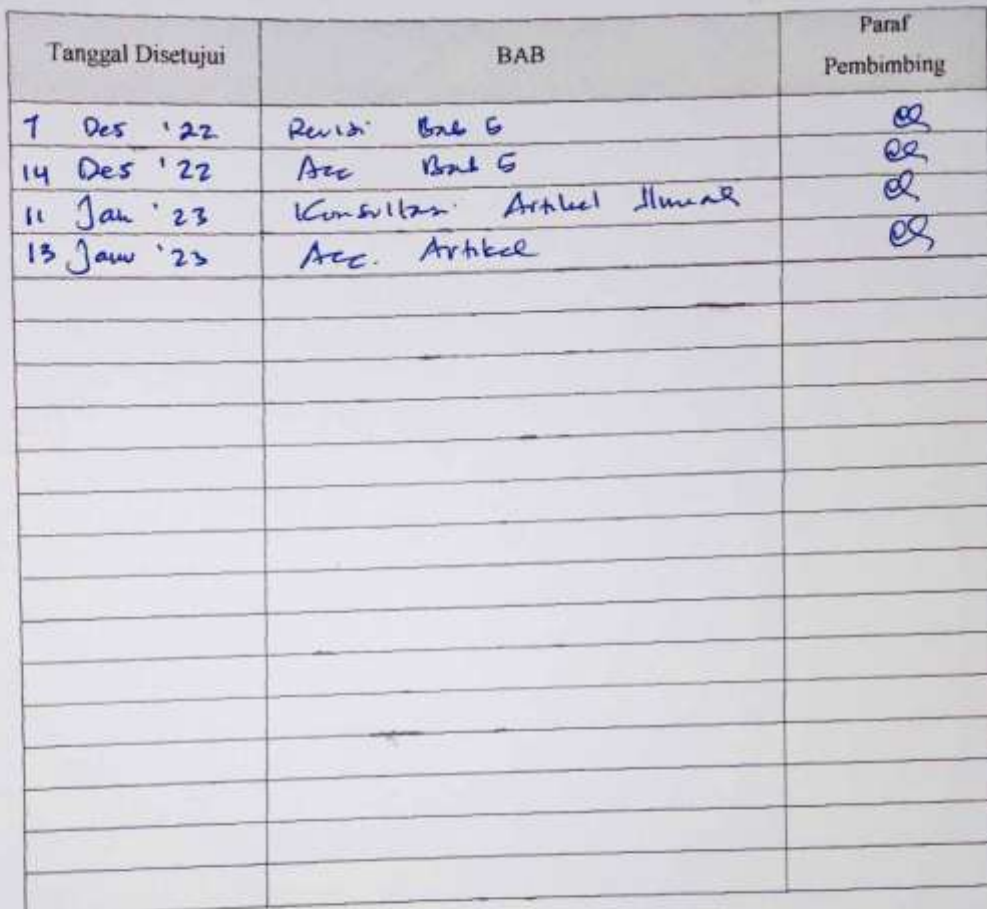 Tanggal Disetujui BAB Paraf Pembimbing
7 Des '22 Revisi Bab 5
14 Des '22 Acc Bab 5
11 Jan '23 Konsultasi Artikel Ilmiah
13 Janu '23 Acc. Artikel